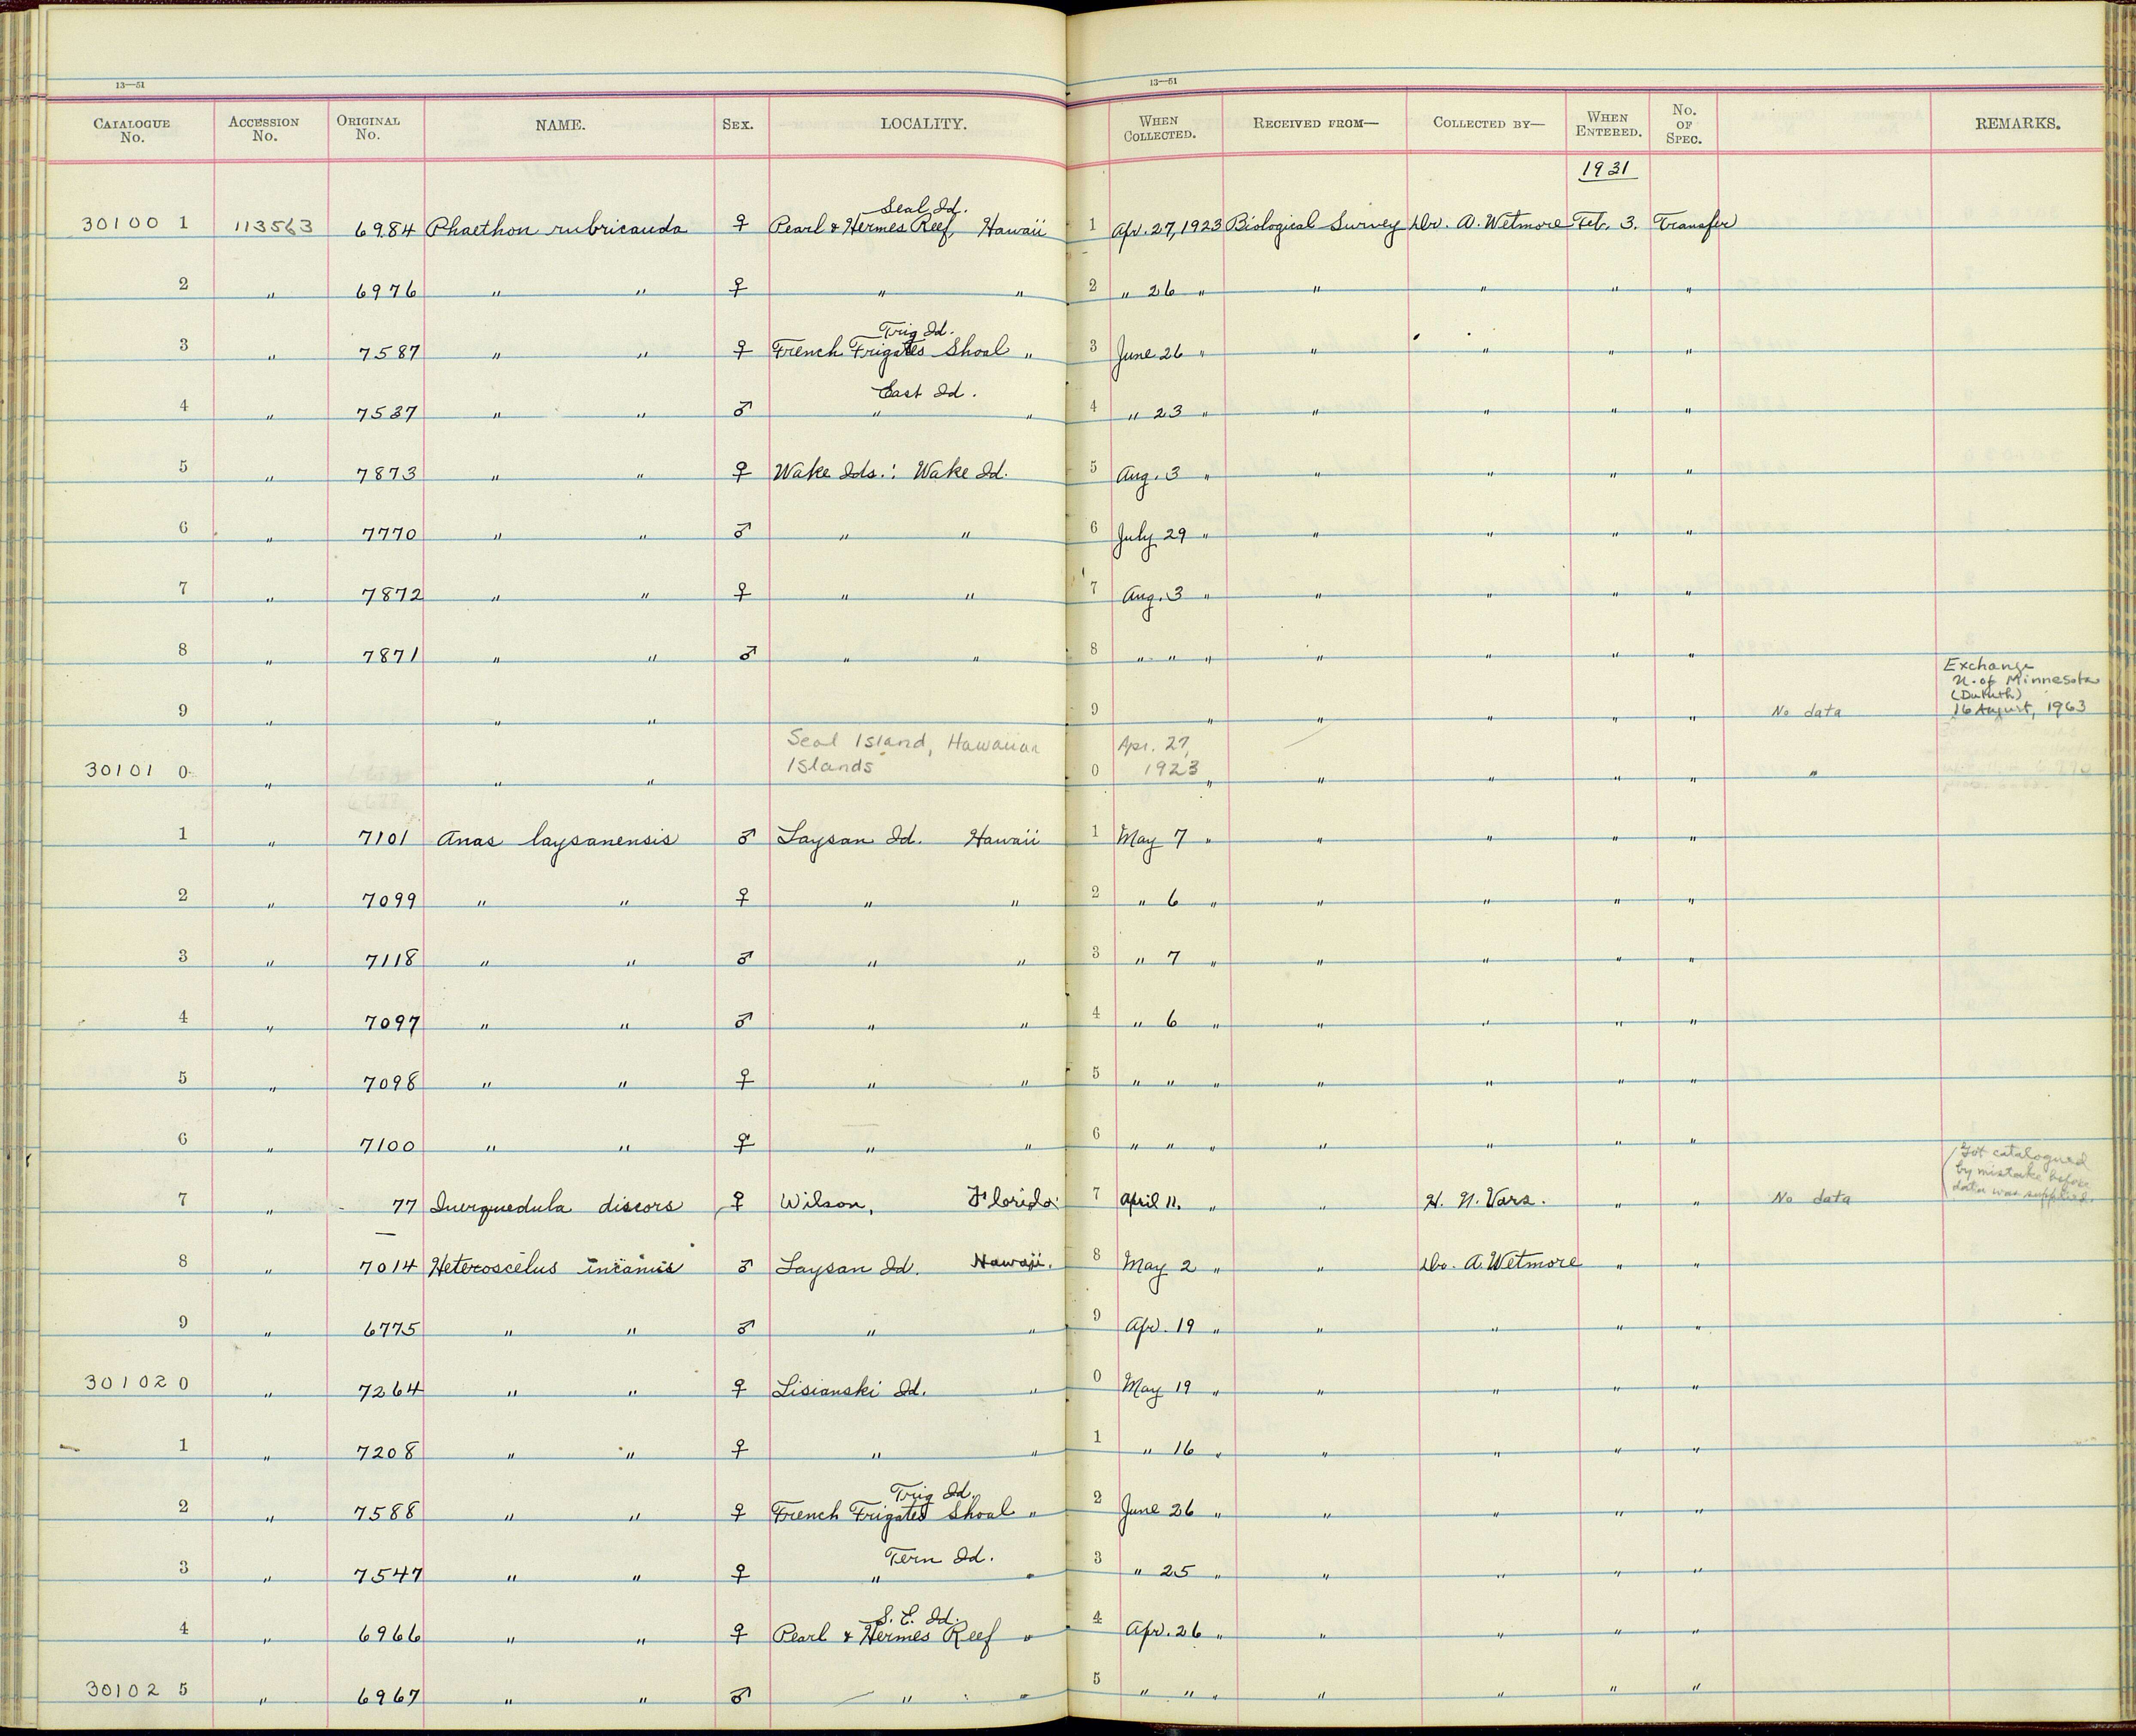 13—51 13—51
CATALOGUE No. ACCESSION No. ORIGINAL No. NAME. SEX. LOCALITY. WHEN COLLECTED. RECEIVED FROM— COLLECTED BY— WHEN ENTERED. No. OF SPEC. REMARKS.
1931
Seal Id.
30100 1 113563 6984 Phaethon rubricauda ♀ Pearl & Hermes Reef, Hawaii 1 Apr. 27, 1923 Biological Survey Dr. A. Wetmore Feb. 3. Transfer
2 " 6976 " " ♀ " " 2 " 26 " " " " "
Trig Id.
3 " 7587 " " ♀ French Frigates Shoal " 3 June 26 " " " " "
East Id.
4 " 7537 " " ♂ " " 4 " 23 " " " " "
5 " 7873 " " ♀ Wake Ids.: Wake Id. 5 Aug. 3 " " " " "
6 " 7770 " " ♂ " " 6 July 29 " " " " "
7 " 7872 " " ♀ " " 7 Aug. 3 " " " " "
8 " 7871 " " ♂ " " 8 " " " " " " "
Exchange
U. of Minnesota
(Duluth)
9 " " " 9 " " " " " No data 16 August, 1963
Seal Island, Hawaiian Apr. 27,
Islands 1923
30101 0 " " " 0 " " " " " "
1 " 7101 Anas laysanensis ♂ Laysan Id. Hawaii 1 May 7 " " " " "
2 " 7099 " " ♀ " " 2 " 6 " " " " "
3 " 7118 " " ♂ " " 3 " 7 " " " " "
4 " 7097 " " ♂ " " 4 " 6 " " " " "
5 " 7098 " " ♀ " " 5 " " " " " " "
6 " 7100 " " ♀ " " 6 " " " " " " "
Got catalogued
by mistake before
data was supplied.
7 " 77 Querquedula discors ♀ Wilson, Florida 7 April 11. " " H. N. Vars. " " No data
8 " 7014 Heteroscelus incanus ♂ Laysan Id. Hawaii. 8 May 2 " " Dr. A. Wetmore " "
9 " 6775 " " ♂ " " 9 Apr. 19 " " " " "
30102 0 " 7264 " " ♀ Lisianski Id. " 0 May 19 " " " " "
1 " 7208 " " ♀ " " 1 " 16 " " " " "
Trig Id.
2 " 7588 " " ♀ French Frigates Shoal " 2 June 26 " " " " "
Tern Id.
3 " 7547 " " ♀ " " 3 " 25 " " " " "
S. E. Id.
4 " 6966 " " ♀ Pearl & Hermes Reef " 4 Apr. 26 " " " " "
30102 5 " 6967 " " ♂ " " 5 " " " " " " "